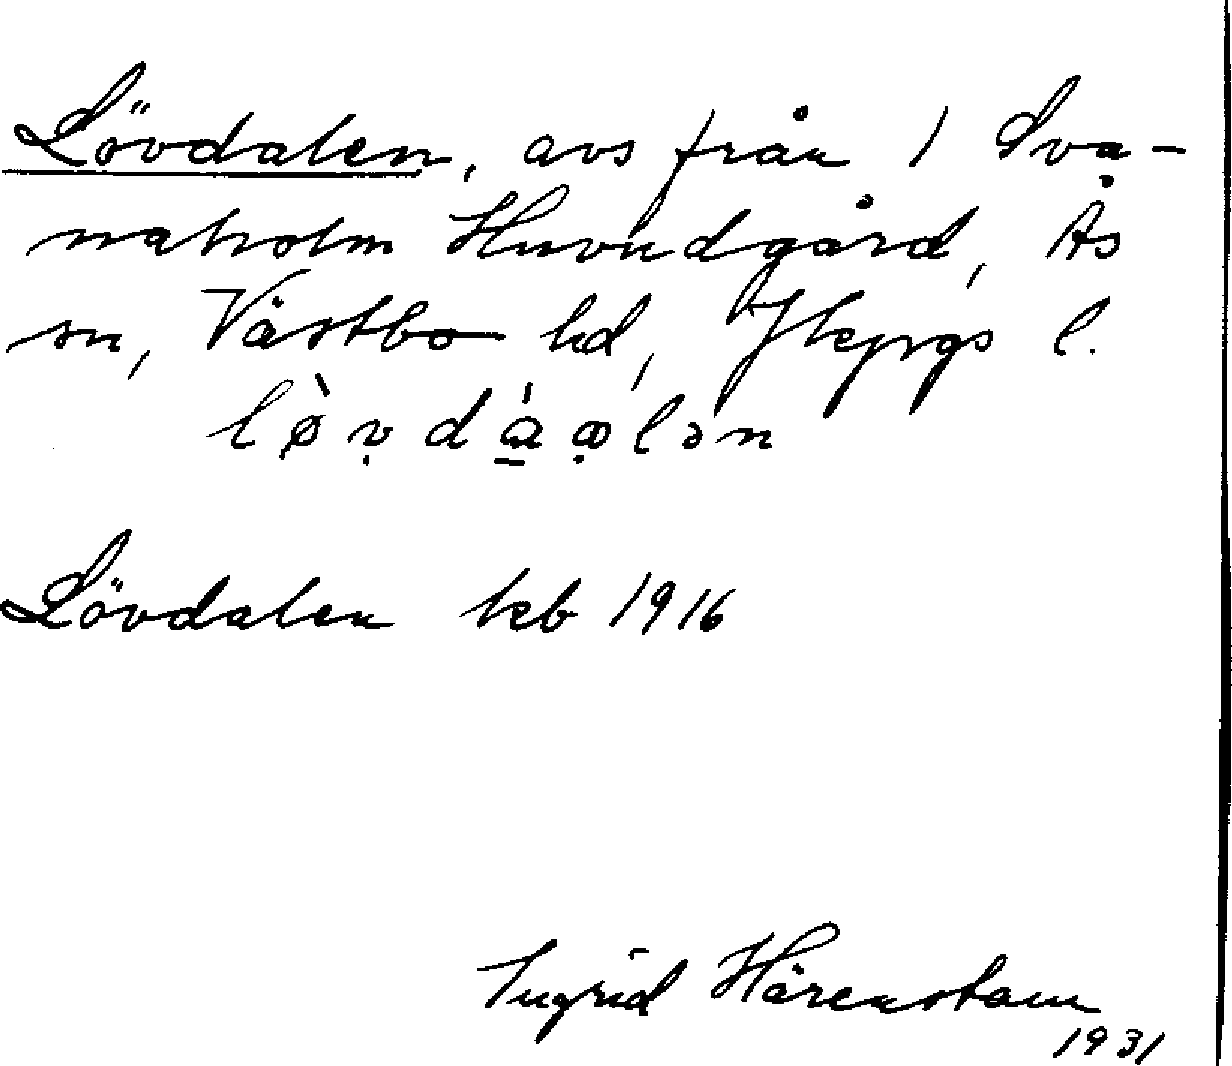 Lövdalen, avs från 1 Sva-
naholm Huvudgård, Ås
sn, Västbo hd, Jkpgs l.
lø̀ṿdá̱ạlən
Lövdalen beb 1916
Ingrid Härenstam
1931